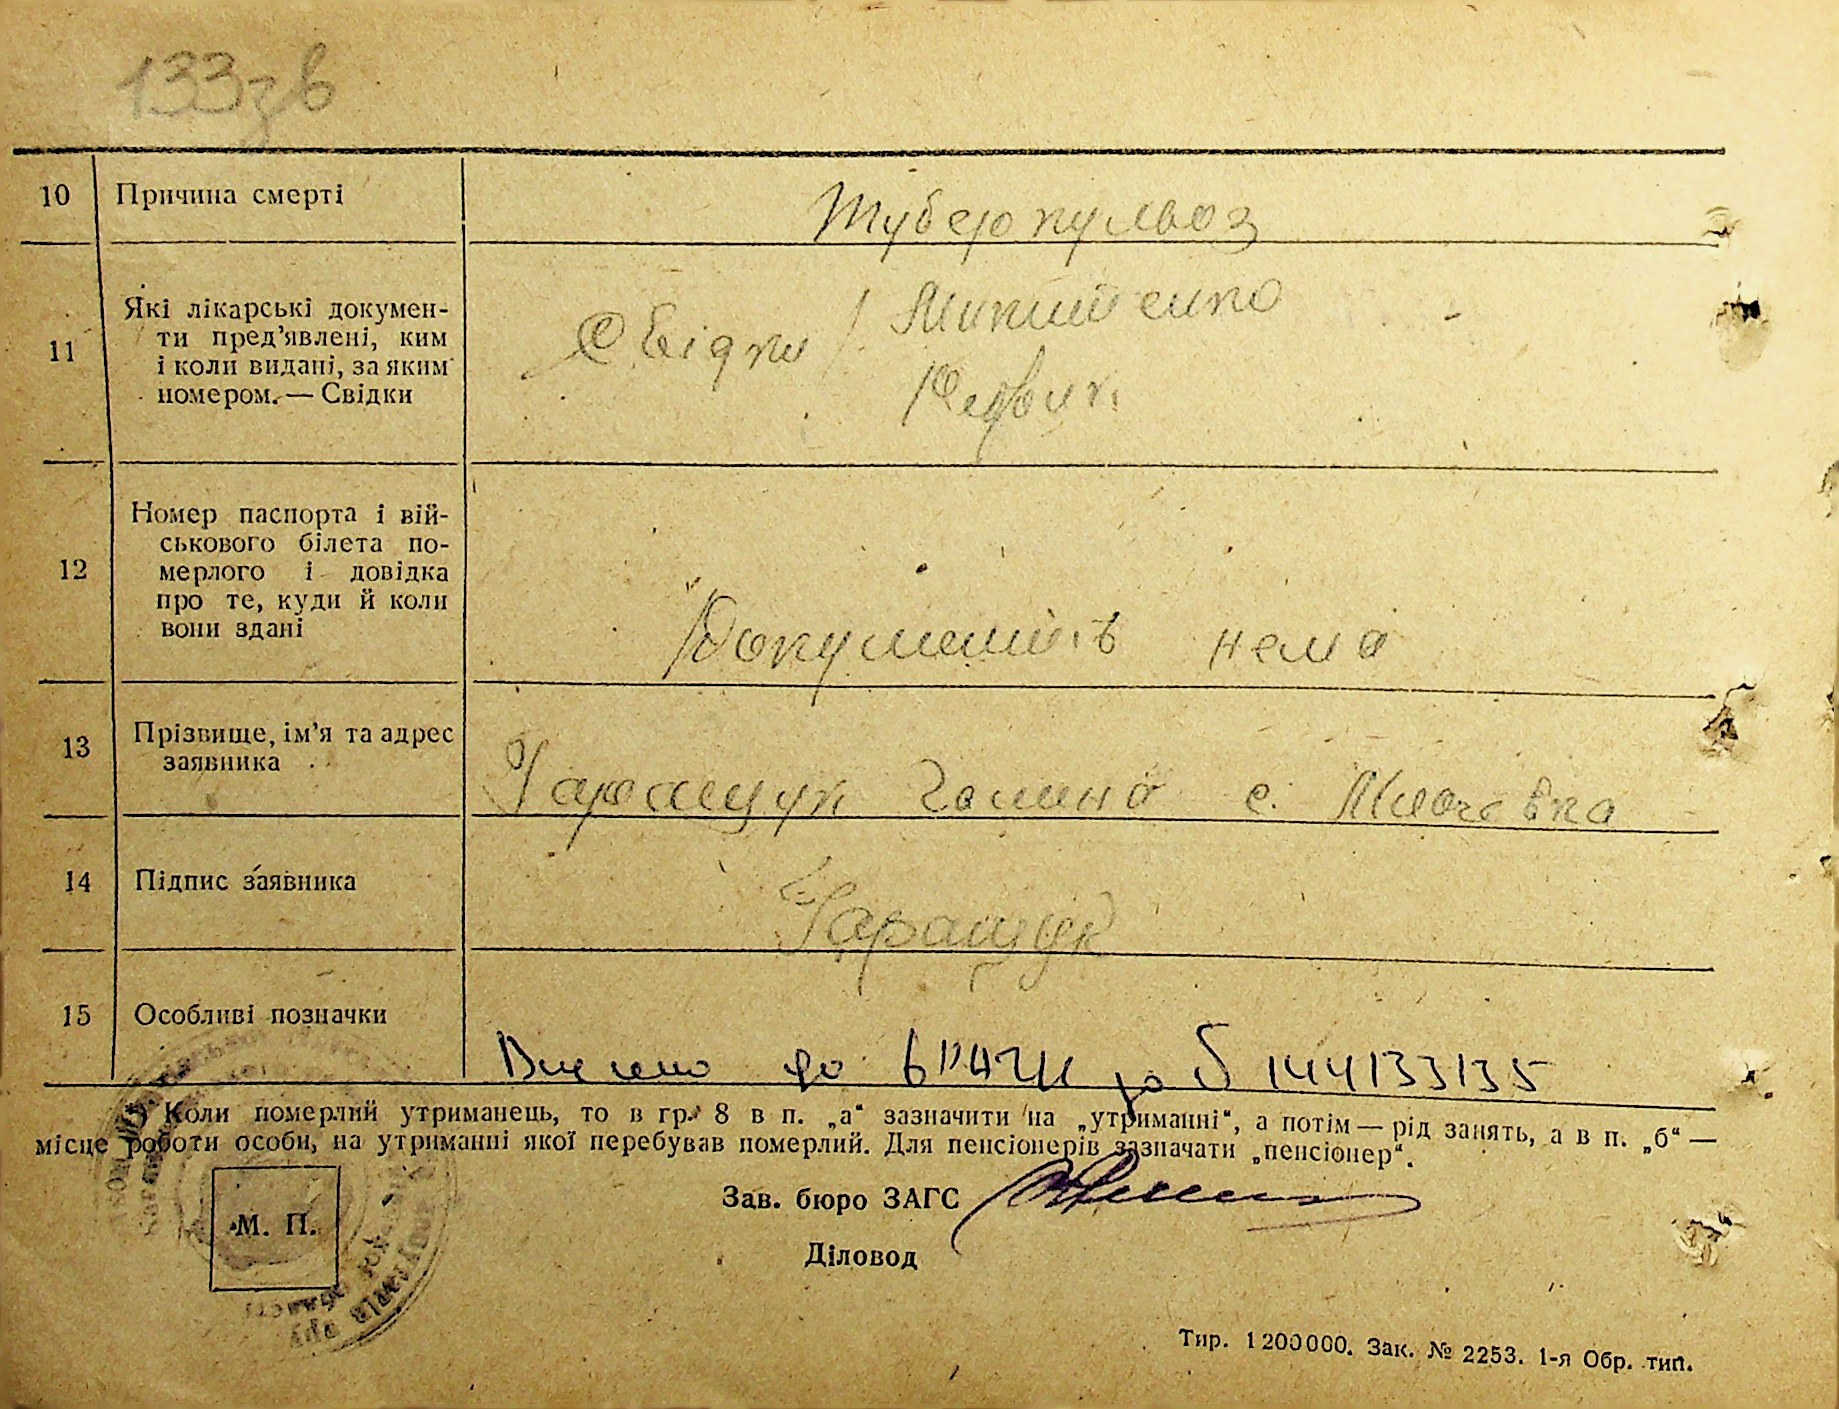 133зв
10 Причина смерті Туберкульоз
11 Які лікарські докумен-
ти пред’явлені, ким
і коли видані, за яким
номером.— Свідки
Свідки / Микитенко
12 Номер паспорта і вій-
ськового білета по-
мерлого і довідка
про те, куди й коли
вони здані
Документів нема
13 Прізвище, ім’я та адрес
заявника
Гаращук Галина с.
14 Підпис заявника Гаращук
15 Особливі позначки
Внесено до ДРАЦС за № 144133135
*) Коли померлий утриманець, то в гр. 8 в п. „а“ зазначити на „утриманні“, а потім — рід занять, а в п. „б“ —
місце роботи особи, на утриманні якої перебував померлий. Для пенсіонерів зазначати „пенсіонер“.
Зав. бюро ЗАГС
М. П.
Діловод
Тир. 1200000. Зак. № 2253. 1-я Обр. тип.